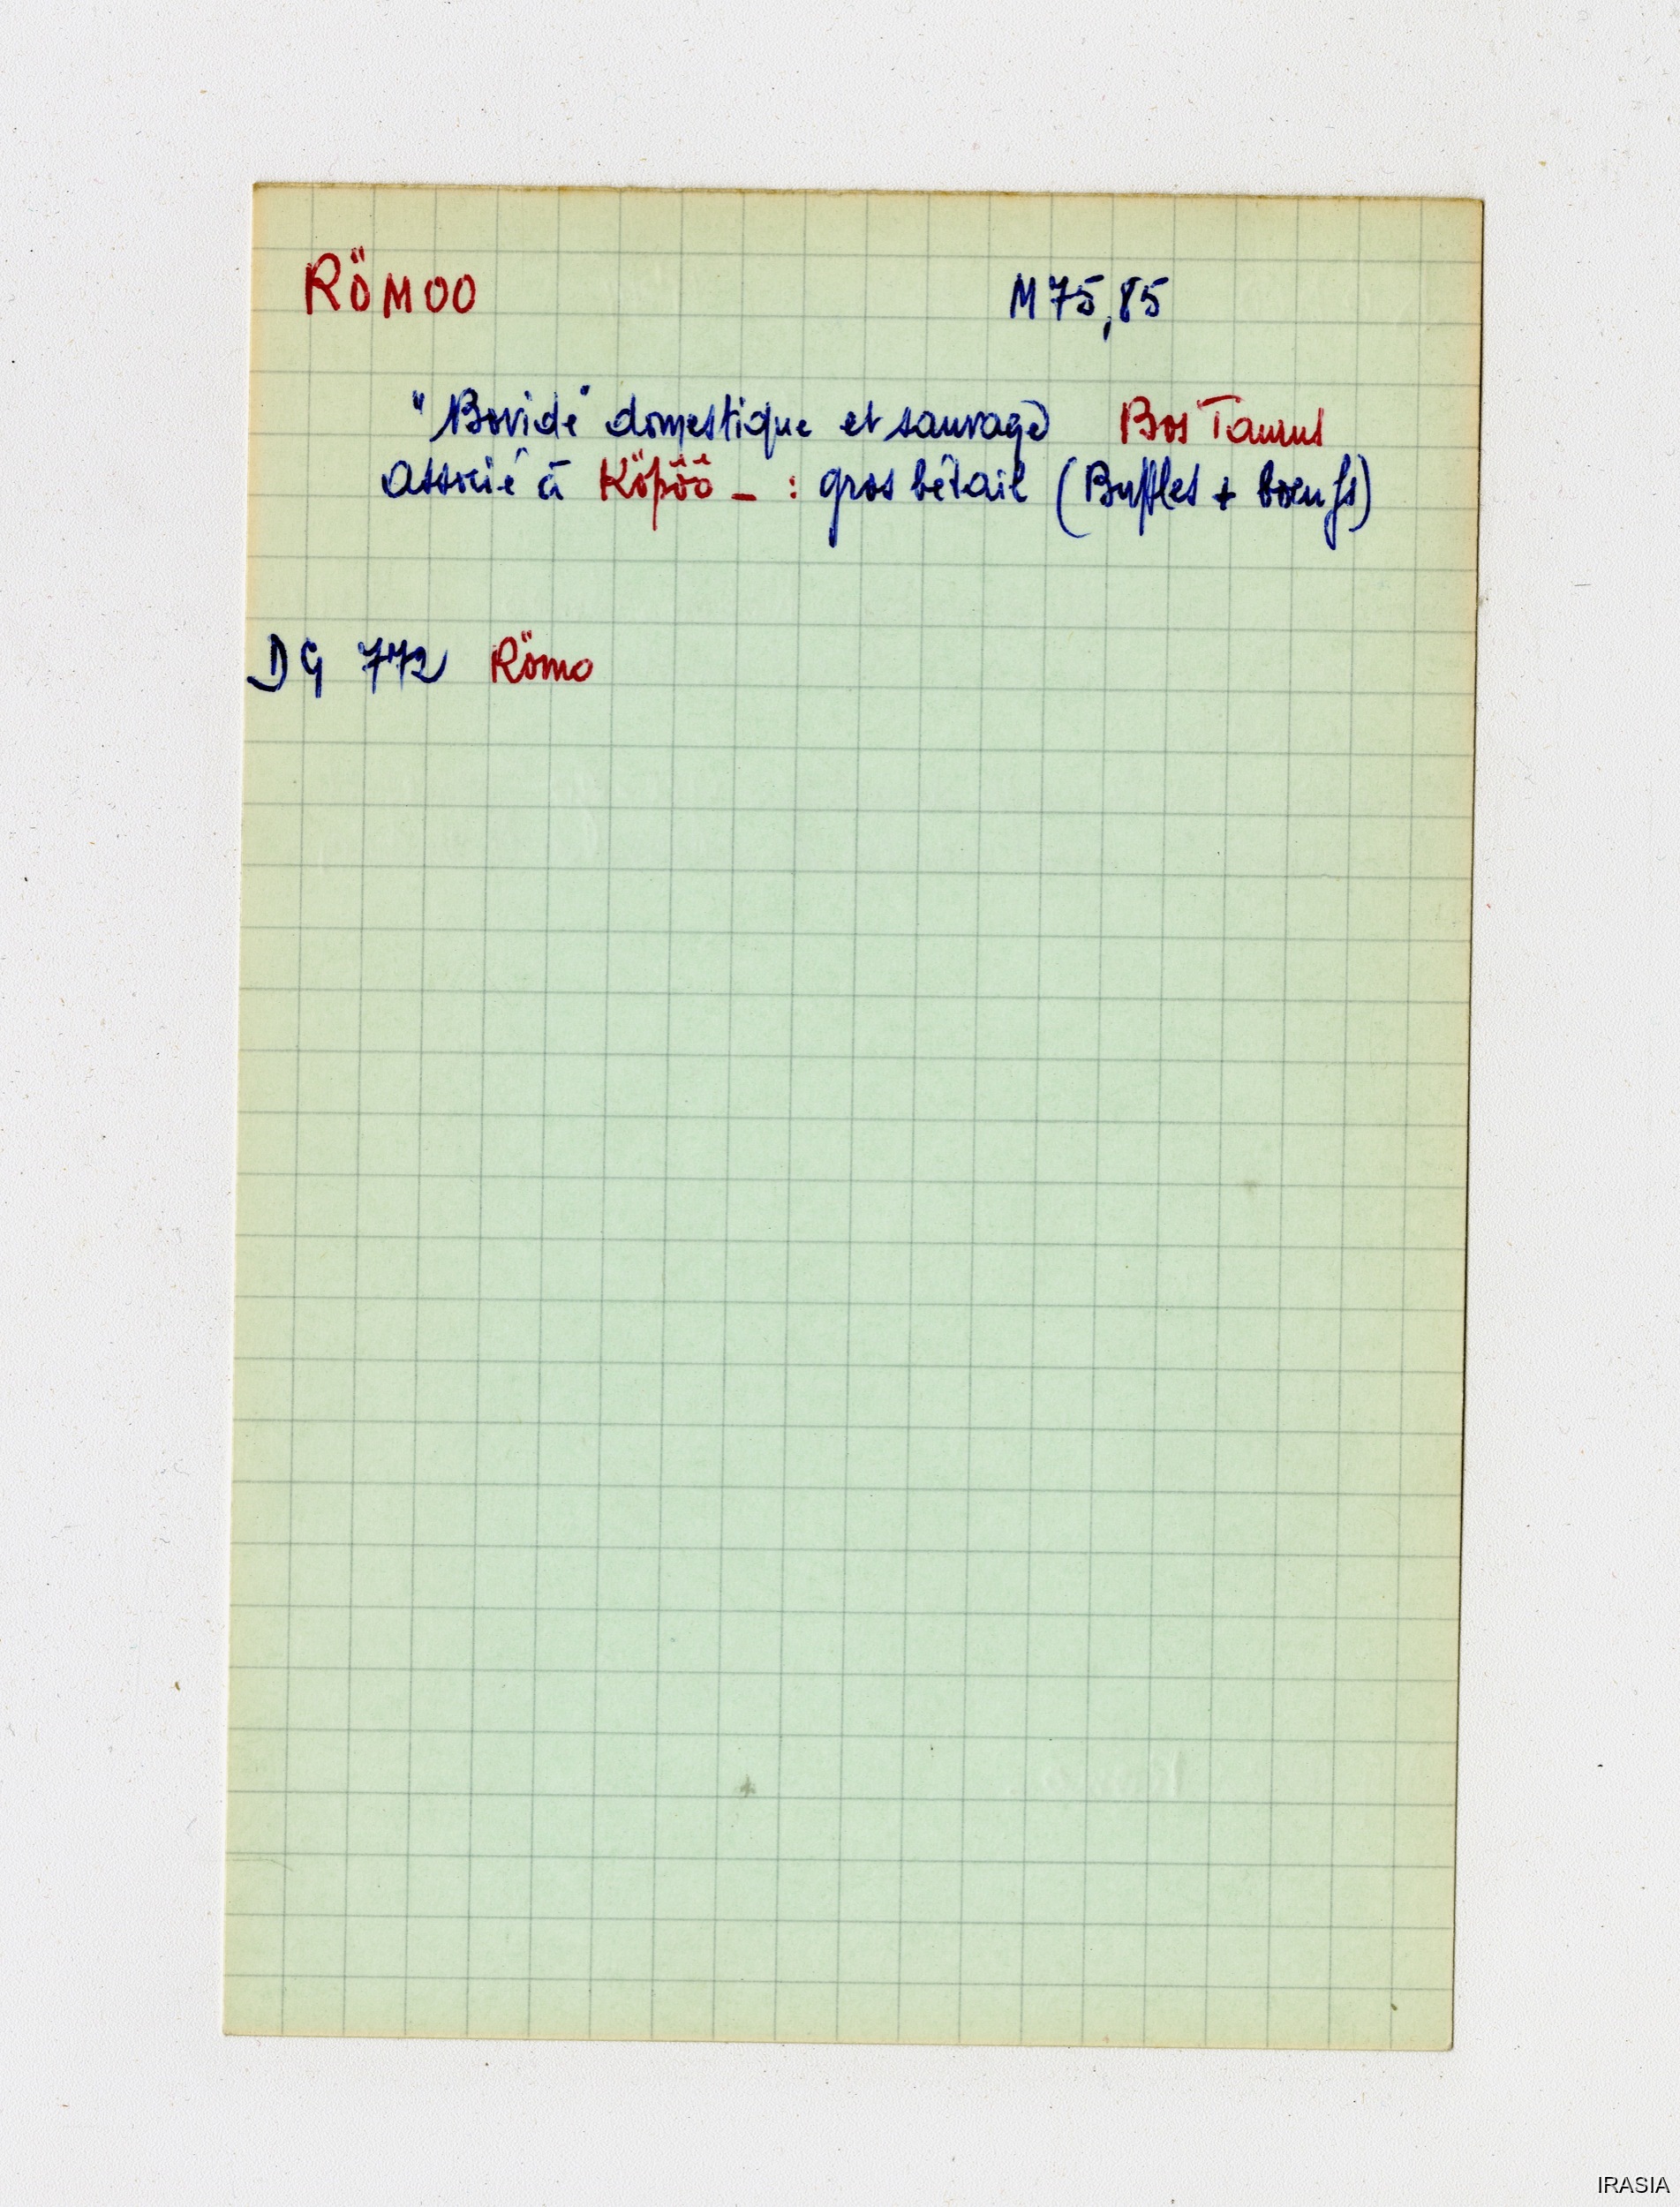 RÖMOO M 75,85
"Bovidé" domestique et sauvage Bos Taurus
associé à Köpôô _ : gros bétail (Buffles + boeufs)
DG 772 Römo
IRASIA